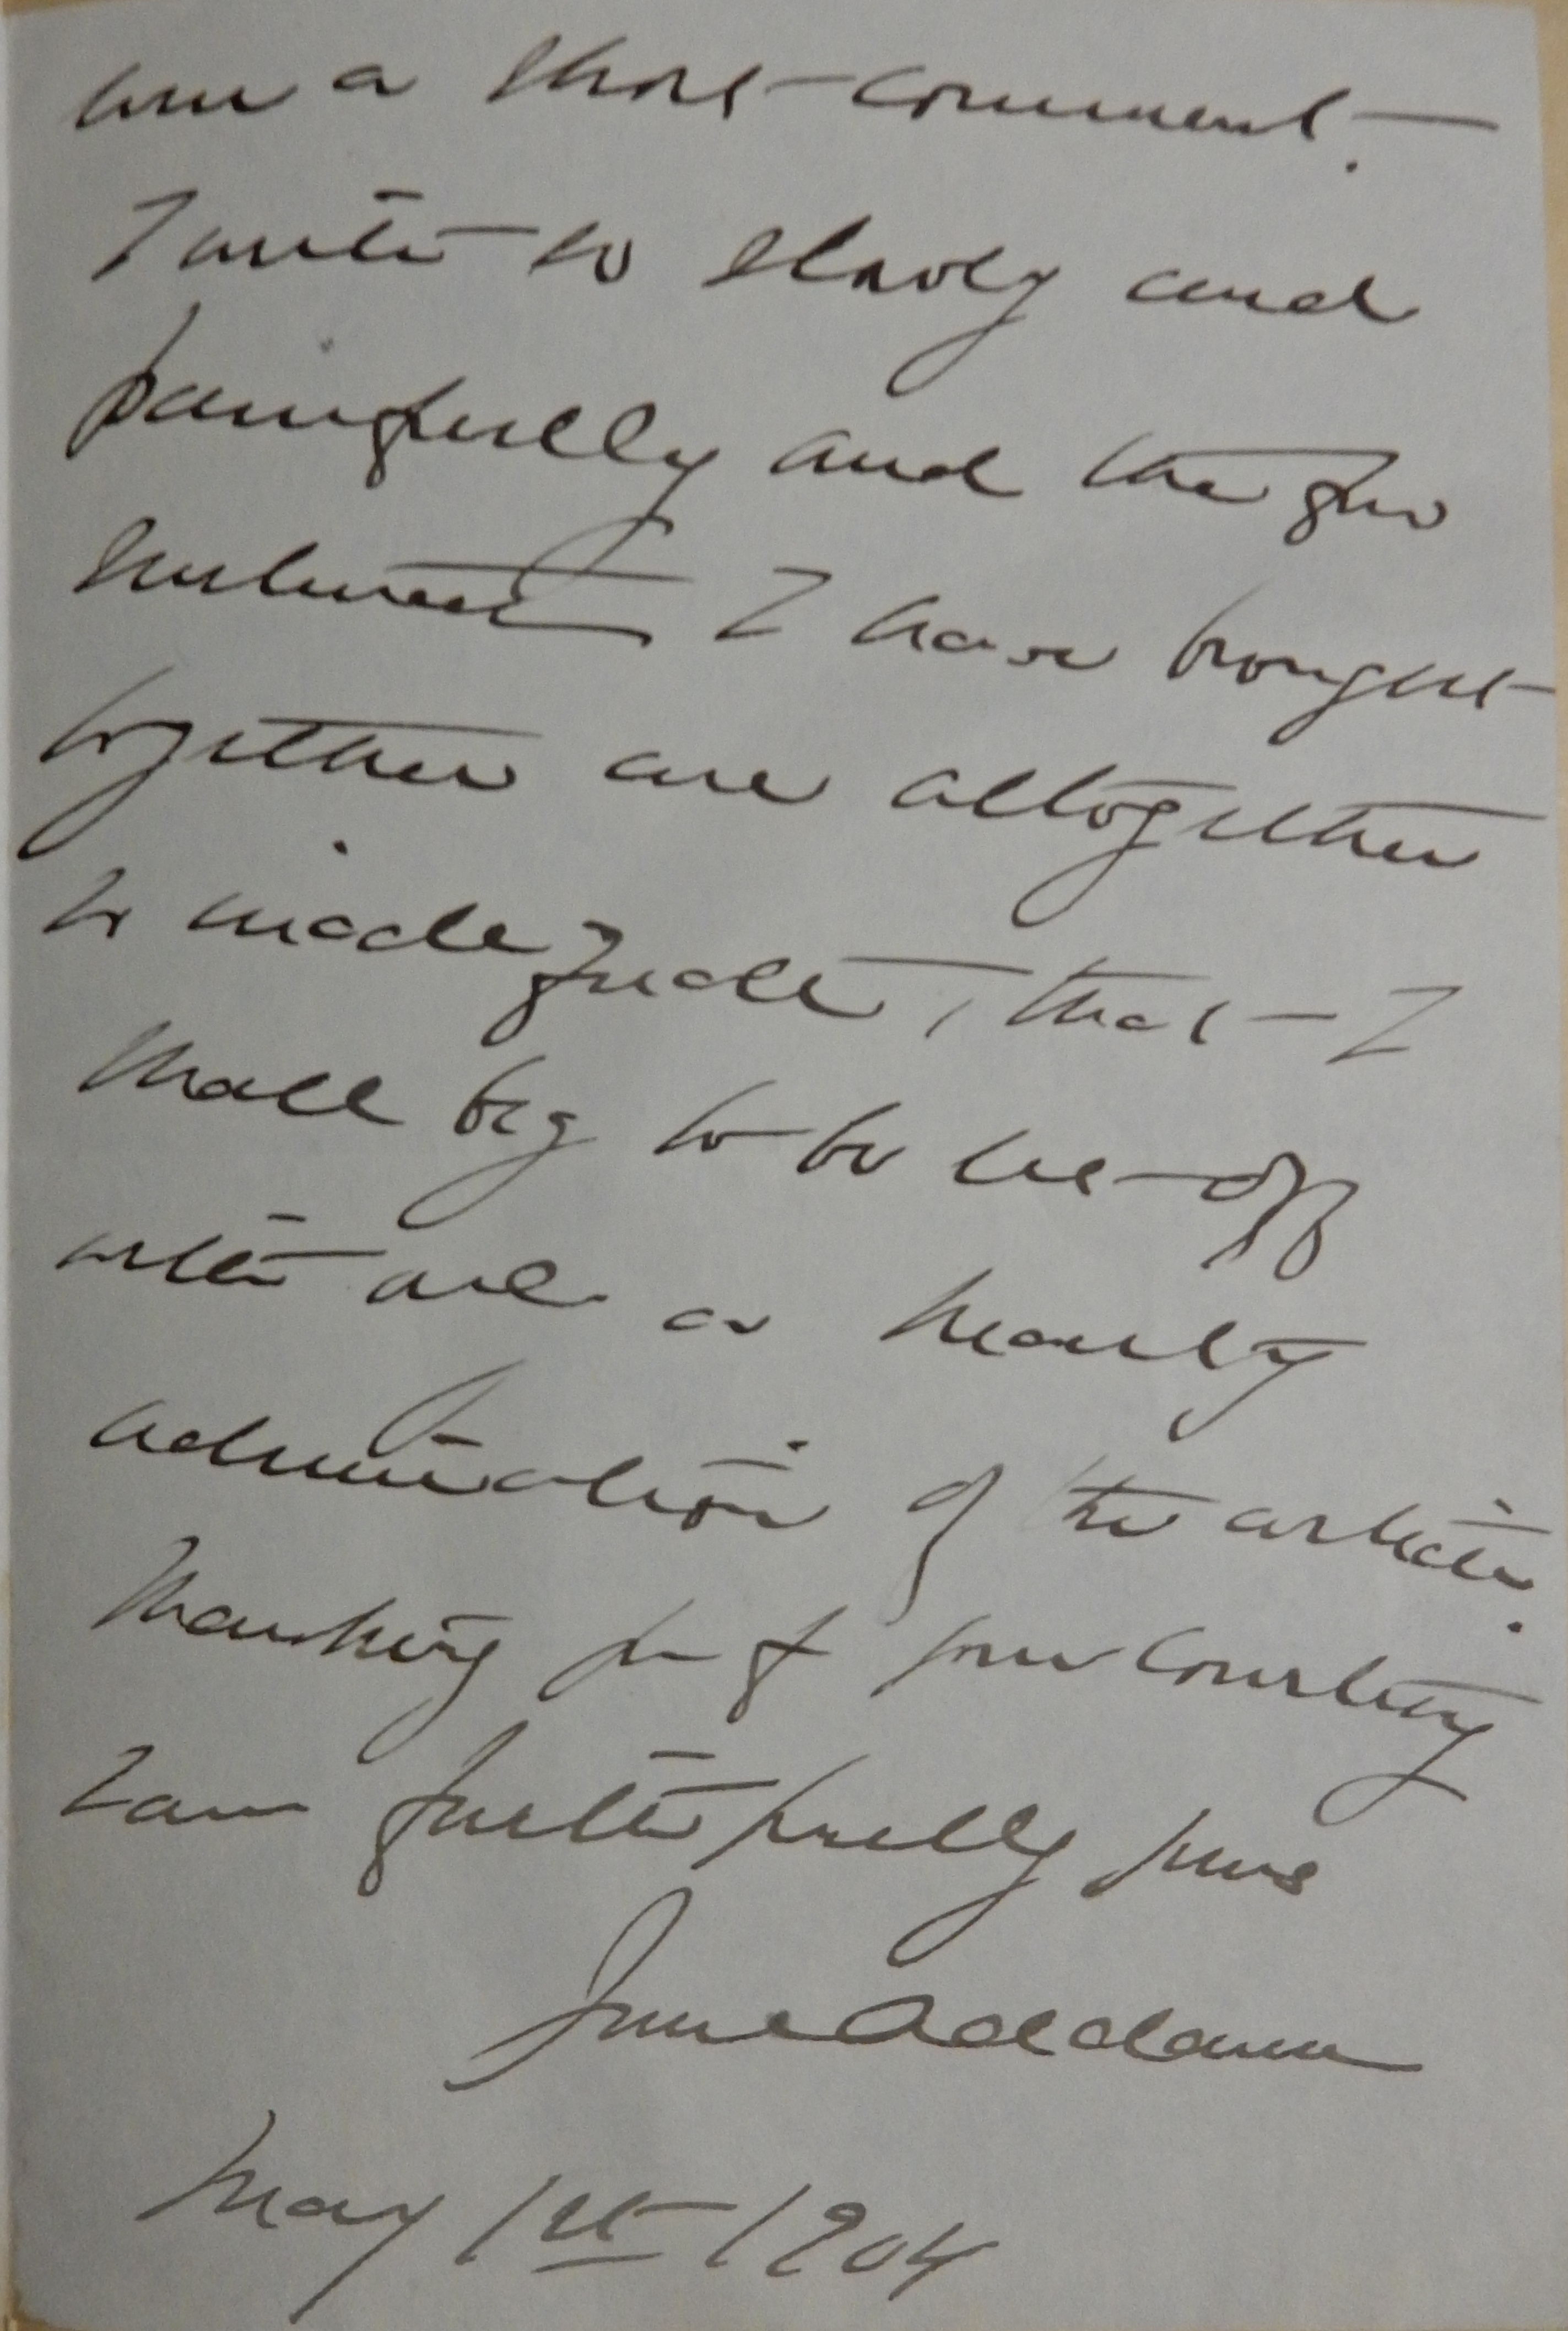 him a short comment.
I write so slowly and
painfully and the few
sentences I have brought
together are altogether
so inadequate, that I
shall beg to be let off
with and a hearty
admiration of the article.
Thanking you for your courtesy
I am faithfully yours
Jane Addams
May 1st 1904